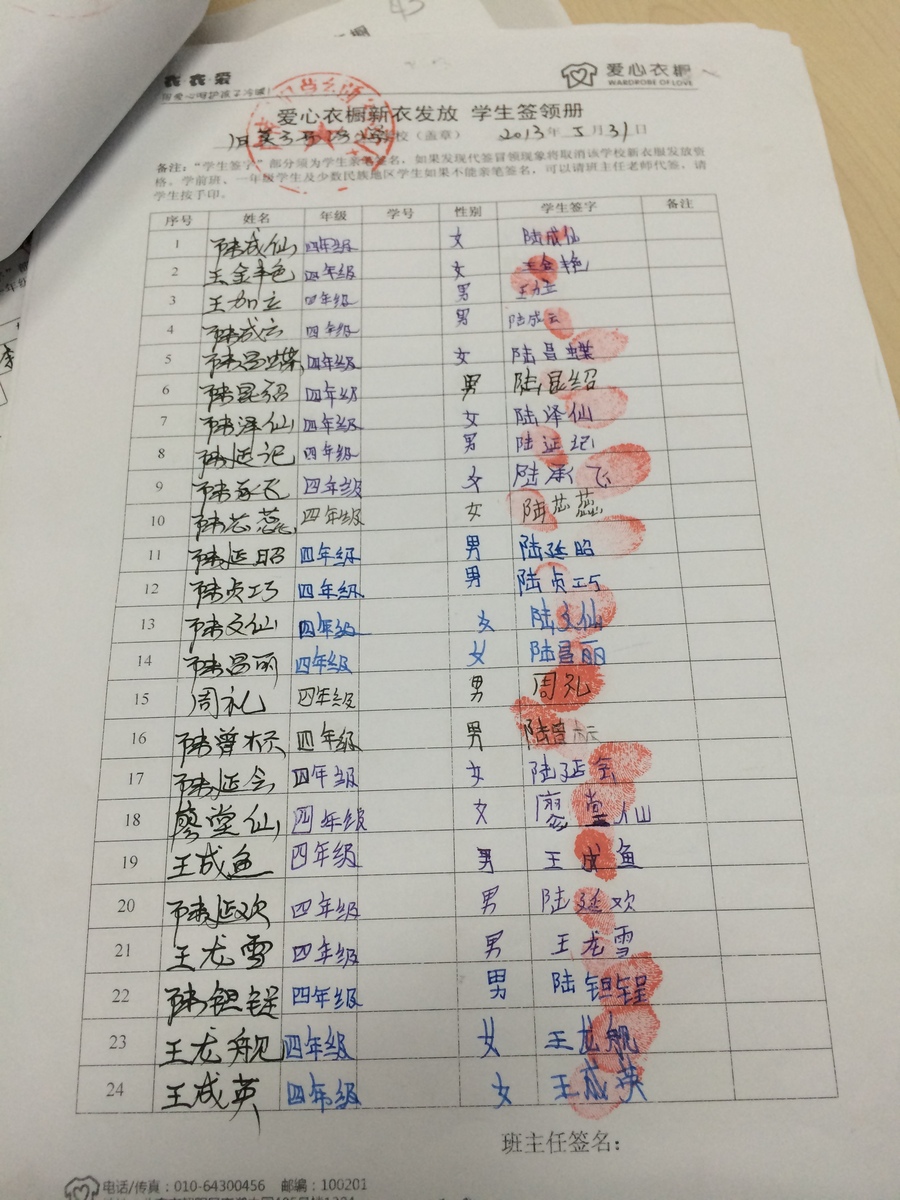 衣衣爱
爱心衣橱
WARDROBE OF LOVE
爱心衣橱新衣发放 学生签领册
学校（盖章） 2013年5月31日
备注："学生签字"部分须为学生亲笔签名，如果发现代签冒领现象将取消该学校新衣服发放资
格。学前班、一年级学生及少数民族地区学生如果不能亲笔签名，可以请班主任老师代签，请
学生按手印。
序号 姓名 年级 学号 性别 学生签字 备注
1 陆成仙 四年级 女 陆成仙
2 王金艳 四年级 女 王金艳
3 王加立 四年级 男 王加立
4 陆成云 四年级 男 陆成云
5 陆昌蝶 四年级 女 陆昌蝶
6 陆昆绍 四年级 男 陆昆绍
7 陆泽仙 四年级 女 陆泽仙
8 陆廷记 四年级 男 陆廷记
9 陆承飞 四年级 女 陆承飞
10 陆芯蕊 四年级 女 陆芯蕊
11 陆廷昭 四年级 男 陆廷昭
12 陆贞巧 四年级 男 陆贞巧
13 陆文仙 四年级 女 陆文仙
14 陆昌丽 四年级 女 陆昌丽
15 周礼 四年级 男 周礼
16 陆曾标 四年级 男 陆曾标
17 陆廷会 四年级 女 陆廷会
18 廖堂仙 四年级 女 廖堂仙
19 王成鱼 四年级 男 王成鱼
20 陆廷欢 四年级 男 陆廷欢
21 王龙雪 四年级 男 王龙雪
22 陆钽锃 四年级 男 陆钽锃
23 王龙舰 四年级 女 王龙舰
24 王成英 四年级 女 王成英
班主任签名：
电话/传真：010-64300456 邮编：100201